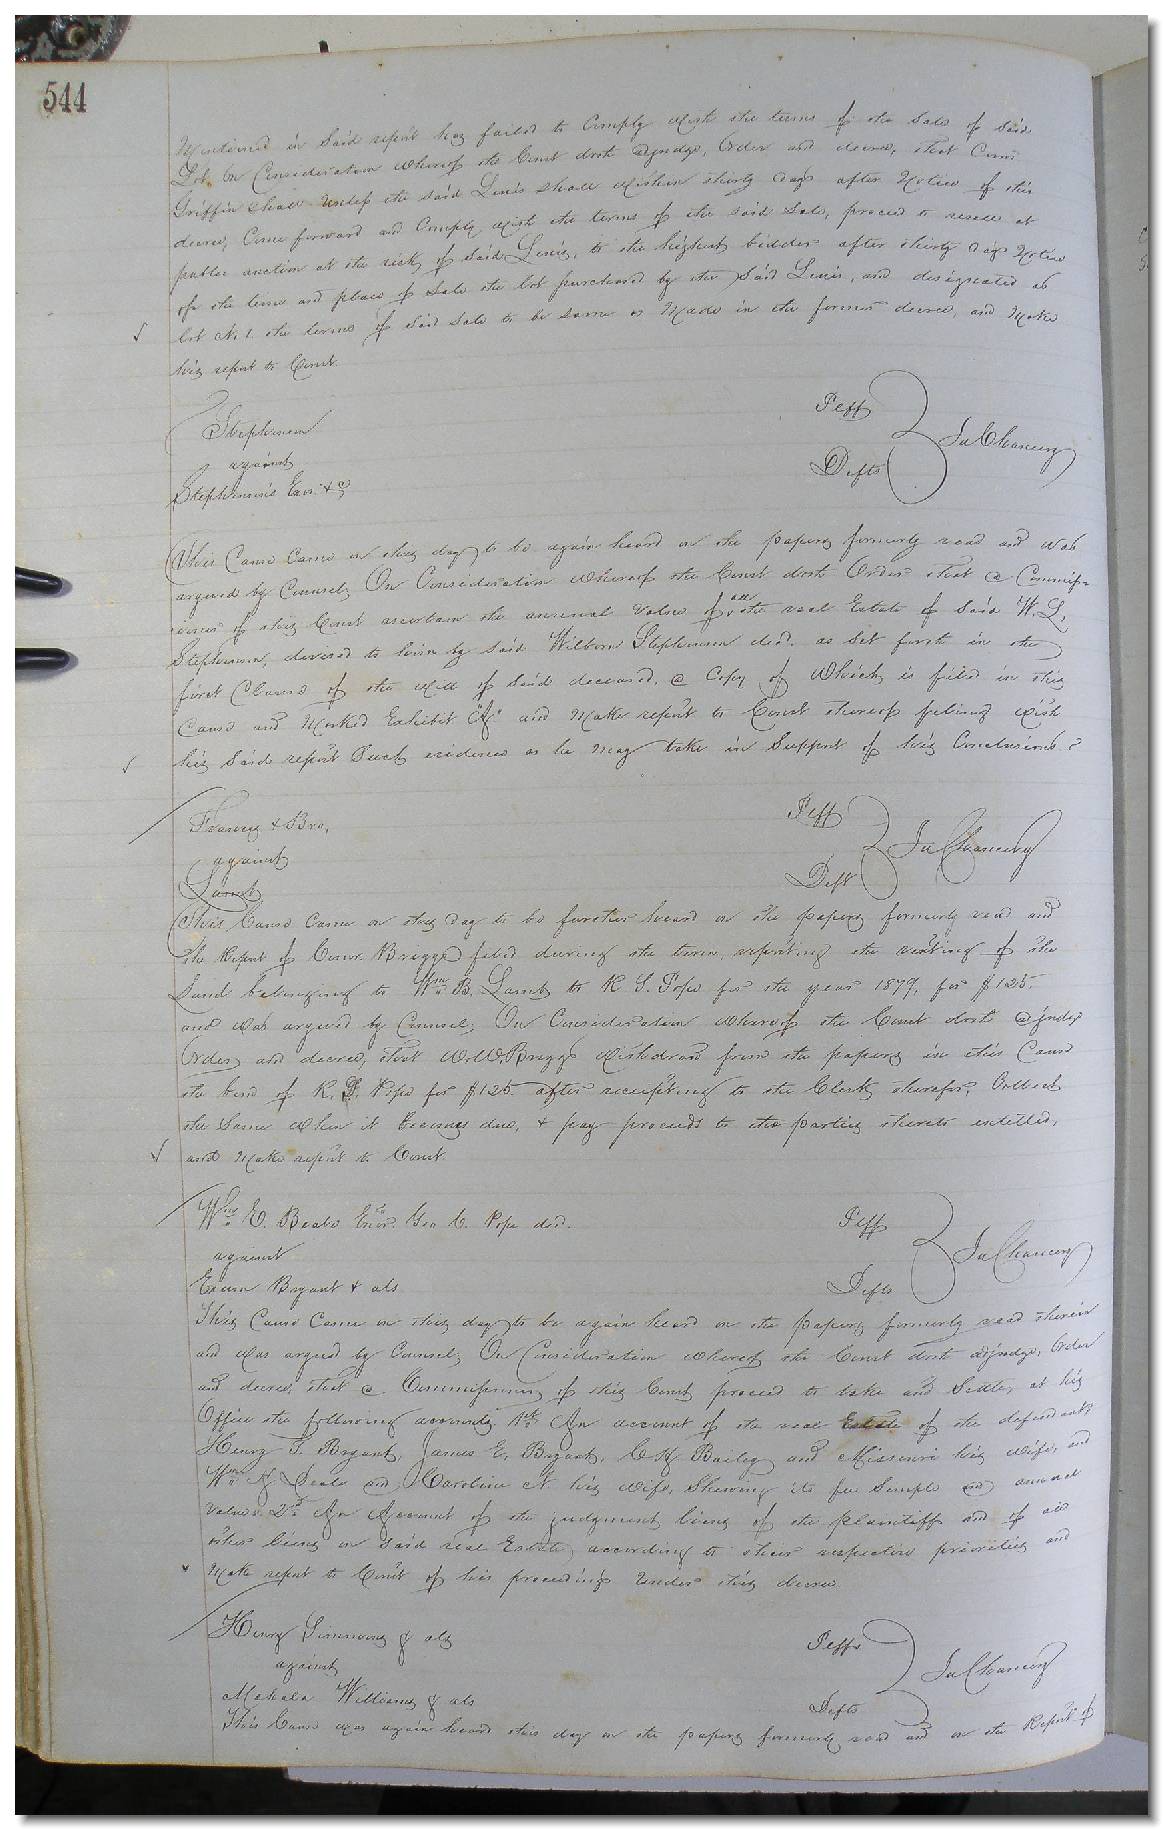 544
Mentioned in Said report has failed to Comply with the terms of the Sale of Said
Lot, On Consideration whereof the Court doth Adjudge, Order and decree, that Comr
Griffin shall Unless the said Lewis shall within thirty days after Notice of this
decree, Come forward and Comply with the terms of the said Sale, proceed to resell at
public auction at the risk of said Lewis, to the highest bidder after thirty days Notice
of the time and place of Sale the lot purchased by the Said Lewis, and designated as
lot No 1. the terms of Said Sale to be same as Made in the former decree, and Make
his report to Court.
Stephenson Plff
against In Chancery
Stephenson's Exor. &c Defts
This Cause Came on this day to be again heard on the papers formerly read and was
argued by Counsel, On Consideration whereof the Court doth Order that a Commiss-
ioner of this Court ascertain the annual Value of all the real Estate of Said W. L.
Stephenson, devised to him by said Wilborn Stephenson decd. as Set forth in the
first Clause of the Will of said deceased, a Copy of Which is filed in this
Cause and Marked Exhibit "A" and Make report to Court thereof filing with
his Said report Such evidence as he May take in Support of his Conclusions
Francis & Bro, Plff
against In Chancery
Lamb Deft
This Cause Came on this day to be further heard on the papers formerly read and
the Report of Comr. Briggs filed during the term, reporting the renting of the
Land belonging to Wm B. Lamb to R S. Pope for the year 1879, for $125.
and was argued by Counsel, On Consideration whereof the Court doth adjudge
Order, and decree, that W. W. Briggs Withdraw from the papers in this Cause
the bond of R. S. Pope for $125 after receipting to the Clerk therefor, Collect
the Same when it becomes due, & pay proceeds to the parties thereto entitled,
and Make report to Court.
Wm E. Beale Exor. Geo C. Pope decd. Plff
against In Chancery
Exum Bryant & als Defts
This Cause Came on this day to be again heard on the papers formerly read therein
and was argued by Counsel, On Consideration whereof the Court doth Adjudge, Order
and decree, that a Commissioner of this Court proceed to take and Settle, at his
Office the following accounts, 1st. An account of the real Estate of the defendants
Henry T. Bryant, James E. Bryant, C H Bailey and Missouri his wife, and
Wm A Deale and Caroline N. his wife, Shewing its fee Simple and annual
Value. 2d. An Account of the judgment liens of the plaintiff and of all
other liens on said real Estate, according to their respective priorities and
Make report to Court of his proceedings Under this decree.
Henry Simmons & als Plffs
against In Chancery
Mahala Williams & als Defts
This Cause was again heard this day on the papers formerly read and on the Report of